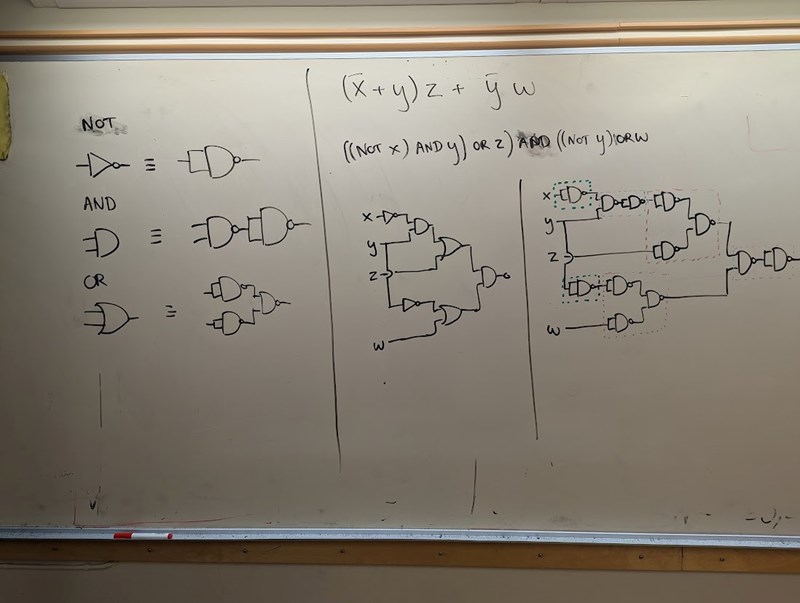 NOT
≡
AND
≡
OR
≡
(x̄ + y) z + ȳ w
((NOT x) AND y) OR z) AND ((NOT y) OR w
x
y
z
w
x
y
z
w